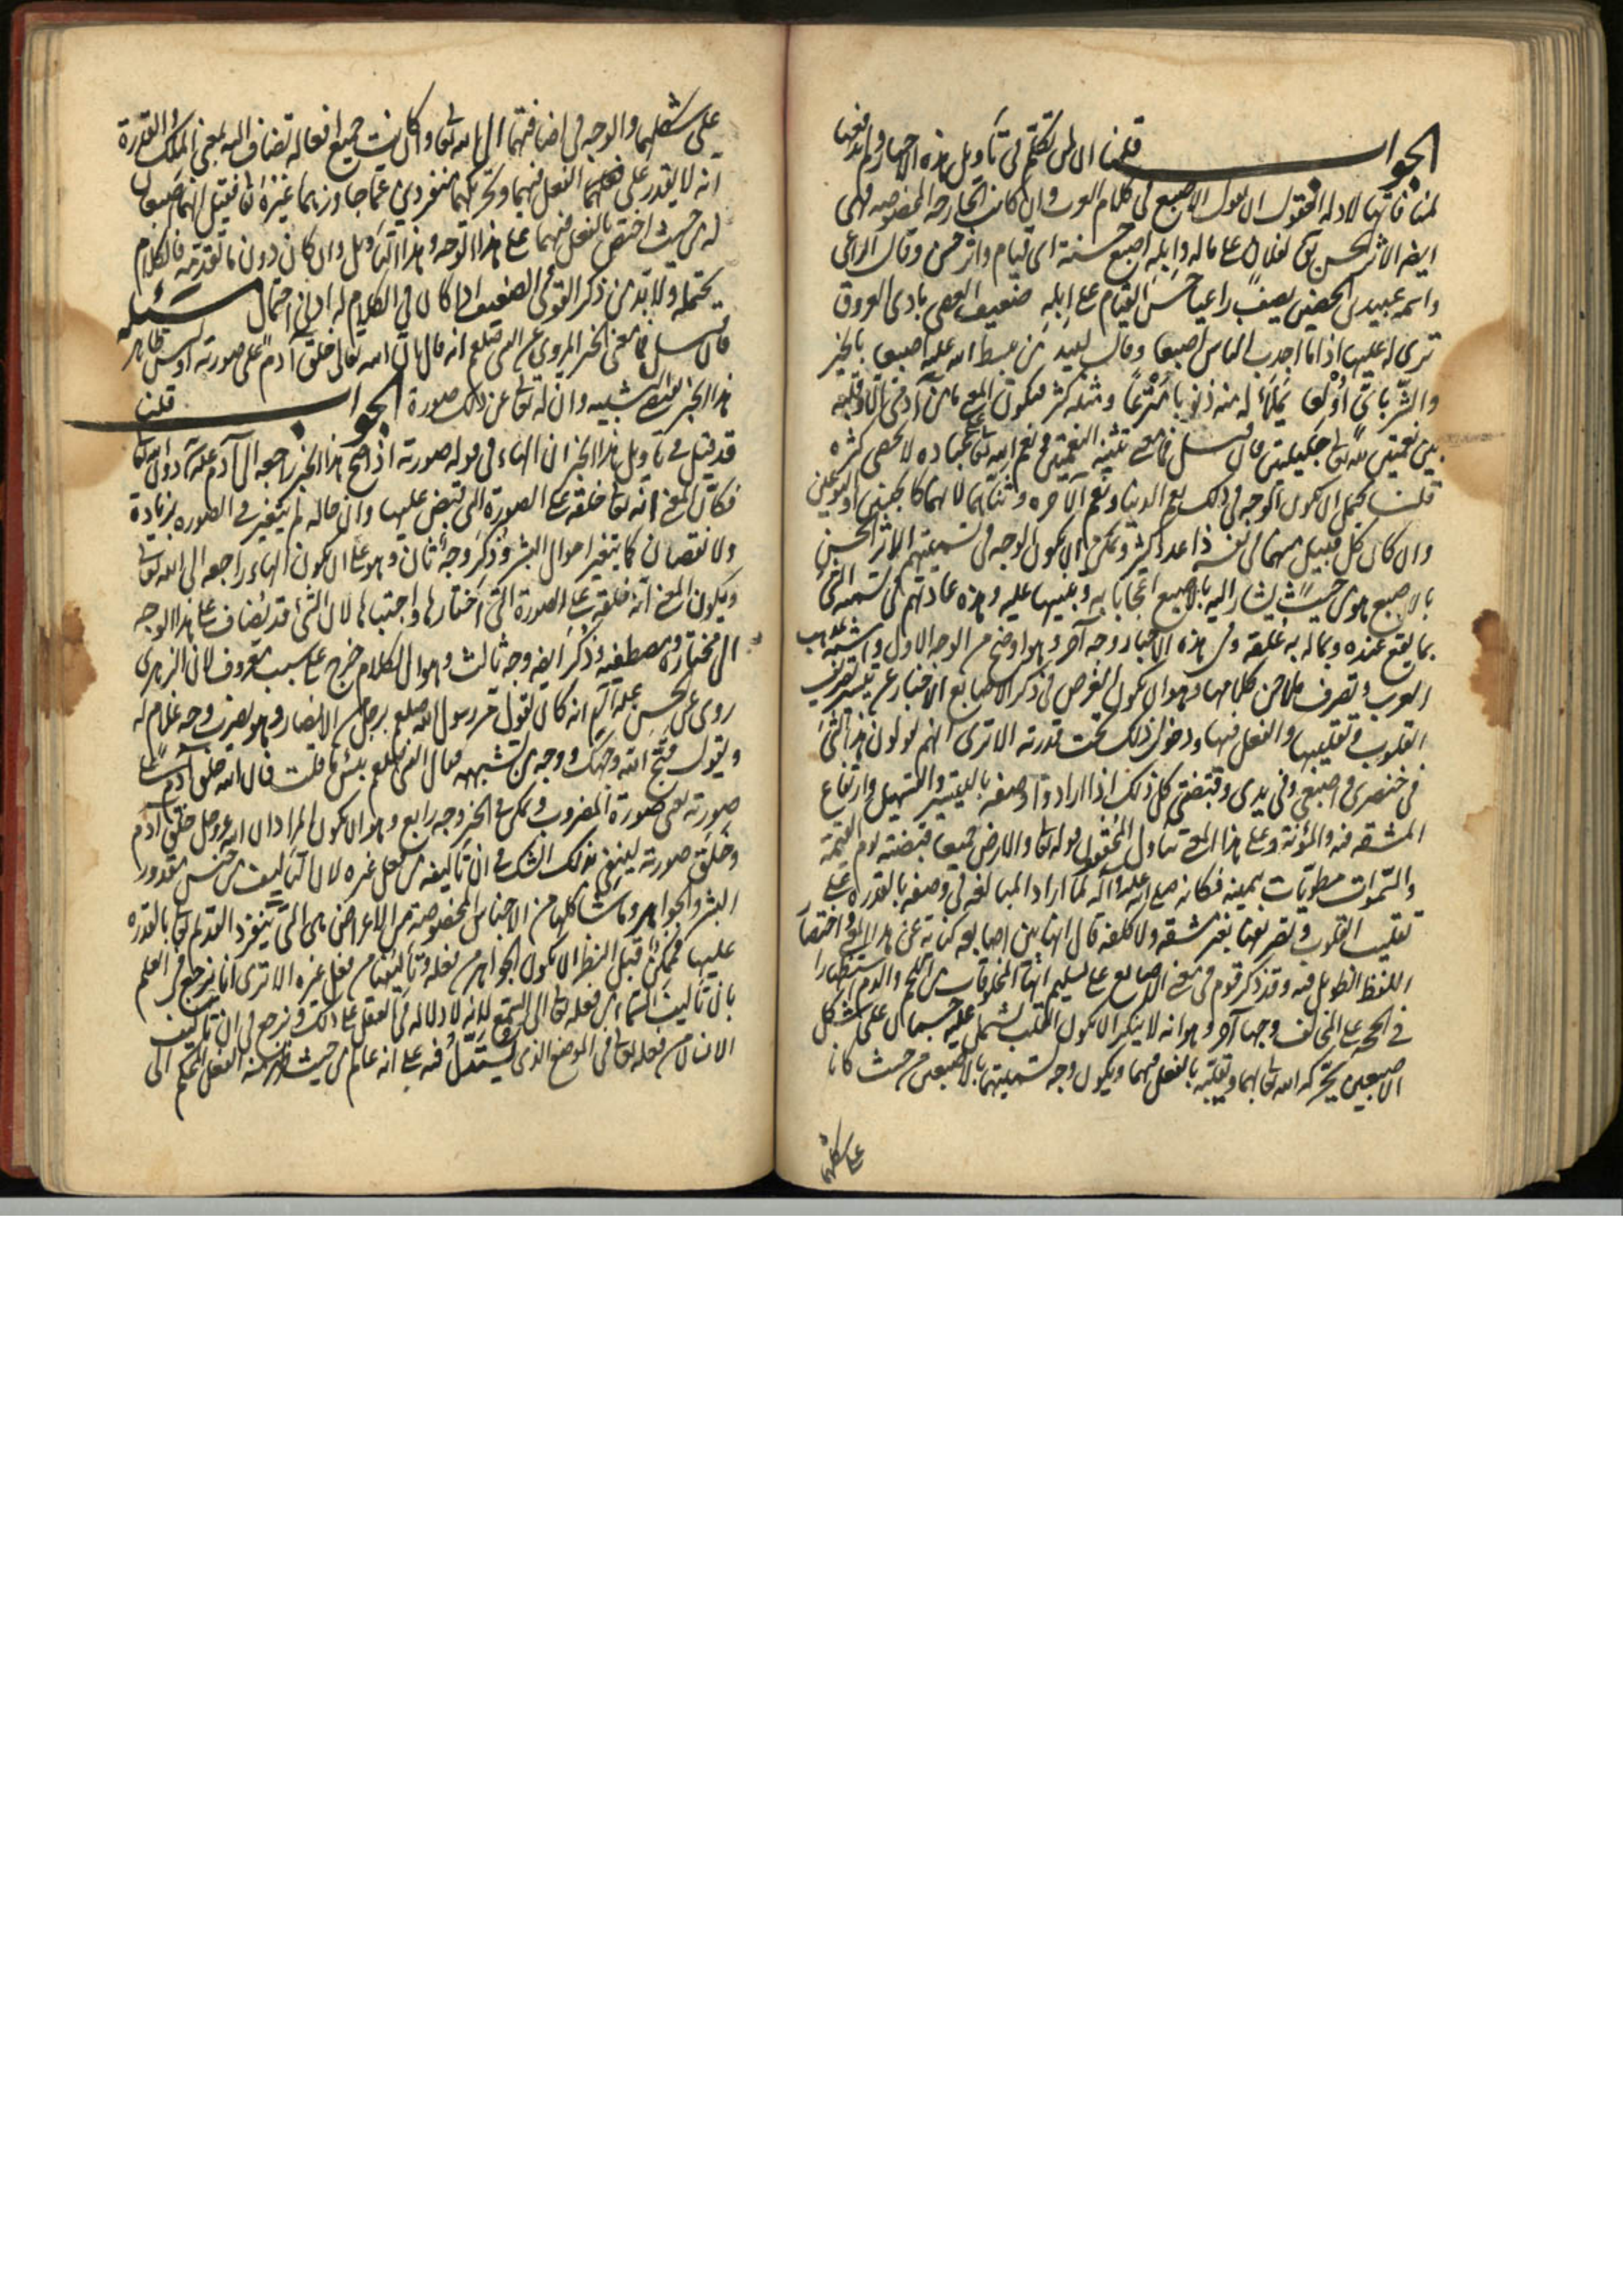 الجواب قلنا ان لمن تكلم في تأويل هذه الاخبار ولم يدفعها
لمنافاتها لادلة العقول ان يقول الاصبع في كلام العرب وان كانت الجارحة المخصوصة فهى
ايضا الاثر الحسن يقال لفلان على ماله وابله اصبع حسنة اى قيام واثر حسن وقال الراعى
واسمه عبيد بن الحصين يصف راعيا حسن القيام على ابله ضعيف العصى بادى العروق
ترى له عليها اذا ما اجدب الناس اصبعا وقال لبيد من يبسط الله عليه اصبعا بالخير
والشر باى اولعا يملأ له منه ذنوبا مترعا ومثله كثير فيكون المعنى ما من آدمى الا وقلبه
بين نعمتين لله تعالى جليلتين فان قيل فما معنى تثنية النعمتين ونعم الله تعالى على عباده لا تحصى كثرة
قلنا يحتمل ان يكون الوجه في ذلك نعم الدنيا ونعم الآخرة وثناهما لانهما كالجنسين او النوعين
وان كان كل قبيل منهما في نفسه ذا عدد كثير ويمكن ان يكون الوجه في تسميتهم الاثر الحسن
بالاصبع هو من حيث يشار اليه بالاصبع اعجابا به وتنبيها عليه وهذه عادتهم في تسمية الشئ
بما يقع عنده وبما له به علقة وفي هذه الاخبار وجه آخر وهو اوضح من الوجه الاول واشبه بمذهب
العرب وتصرف ملاحن كلامها وهو ان يكون الغرض في ذكر الاصابع الاخبار عن تيسر تصريف
القلوب وتقليبها والفعل فيها ودخول ذلك تحت قدرته الا ترى انهم يقولون هذا الشئ
في خنصرى واصبعى وفى يدى وقبضتى كل ذلك اذا ارادوا وصفه بالتيسير والتسهيل وارتفاع
المشقة فيه والمؤنة وعلى هذا المعنى يتأول المحققون قوله تعالى والارض جميعا قبضته يوم القيمة
والسموات مطويات بيمينه فكانه صلى الله عليه وآله لما اراد المبالغة في وصفه بالقدرة على
تقليب القلوب وتصريفها بغير مشقة ولا كلفة قال انها بين اصابعه كناية عن هذا المعنى واختصارا
اللفظ الطويل فيه وقد ذكر قوم في معنى الاصابع على تسليم انها المخلوقات من اللحم والدم استظهارا
في الحجة على المخالف وجها آخر وهو انه لا ينكر ان يكون القلب يشتمل عليه جسمان على شكل
الاصبعين يحركه الله تعالى بهما ويقلبه بالفعل فيهما ويكون وجه تسميتهما بالاصبعين من حيث كانا
على شكلهما
على شكلهما والوجه في اضافتهما الى الله تعالى وان كانت جميع افعاله تضاف اليه بمعنى الملك والقدرة
انه لا يقدر على الفعل فيهما وتحريكهما منفردين عما جاورهما غيره تعالى فقيل انهما اصبعان
له من حيث اختص بالفعل فيهما على هذا الوجه وهذا التأويل وان كان دون ما تقدمه فالكلام
يحتمله ولا بد من ذكر القوى والضعيف اذا كان في الكلام له ادنى احتمال مسئله
فان سئل فما معنى الخبر المروى عن النبى صلعم انه قال ان الله تعالى خلق آدم على صورته اوليس ظاهر
هذا الخبر يقتضى التشبيه وان له تعالى عن ذلك صورة الجواب قلنا
قد قيل في تأويل هذا الخبر ان الهاء في قوله صورته اذا صح هذا الخبر راجعة الى آدم عليه دون الله تعالى
فكان المعنى انه تعالى خلقه على الصورة التى قبض عليها وان حاله لم يتغير في الصورة بزيادة
ولا نقصان كما يتغير احوال البشر وذكر وجه ثان وهو على ان يكون الهاء راجعة الى الله تعالى
ويكون المعنى انه خلقه على الصورة التى اختارها واجتباها لان الشئ قد يضاف على هذا الوجه
الى مختاره ومصطفيه وذكر ايضا وجه ثالث وهو ان الكلام خرج على سبب معروف لان الزهرى
روى عن الحسن انه كان يقول مر رسول الله صلعم برجل من الانصار وهو يضرب وجه غلام له
ويقول قبح الله وجهك ووجه من تشبهه فقال النبى صلعم بئس ما قلت فان الله خلق آدم على
صورته يعنى صورة المضروب ويمكن في الخبر وجه رابع وهو ان يكون المراد ان الله عز وجل خلق آدم
وخلق صورته لينتفى بذلك الشك في ان تأليفه من فعل غيره لان التأليف من جنس مقدور
البشر والجواهر وما شاكلها من الاجناس المخصوصة من الاعراض هى التى ينفرد القديم تعالى بالقدرة
عليها فيمكن قبل النظر ان يكون الجواهر من فعله وتأليفها من فعل غيره الا ترى انا نرجع في العلم
بان تأليف السماء من فعله تعالى الى السمع لانه لا دلالة في العقل على ذلك ونرجع في ان تأليف
الانسان من فعله تعالى في الموضع الذى يستدل فيه على انه عالم من حيث ظهر منه الفعل المحكم الى